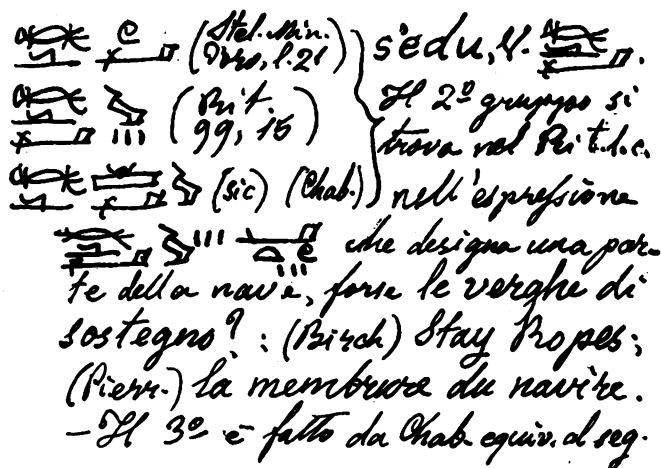 (Stel. Min.
Vers, l. 21) s'edu, V.
(Rit. 99, 15) Il 2º gruppo si
trova nel Rit. l. c.
(sic) (Chab.) nell'espressione
che designa una par-
te della nave, forse le verghe di
sostegno? : (Birch) Stay Ropes;
(Pierr.) la membrure du navire.
— Il 3º è fatto da Chab. equiv. al seg.